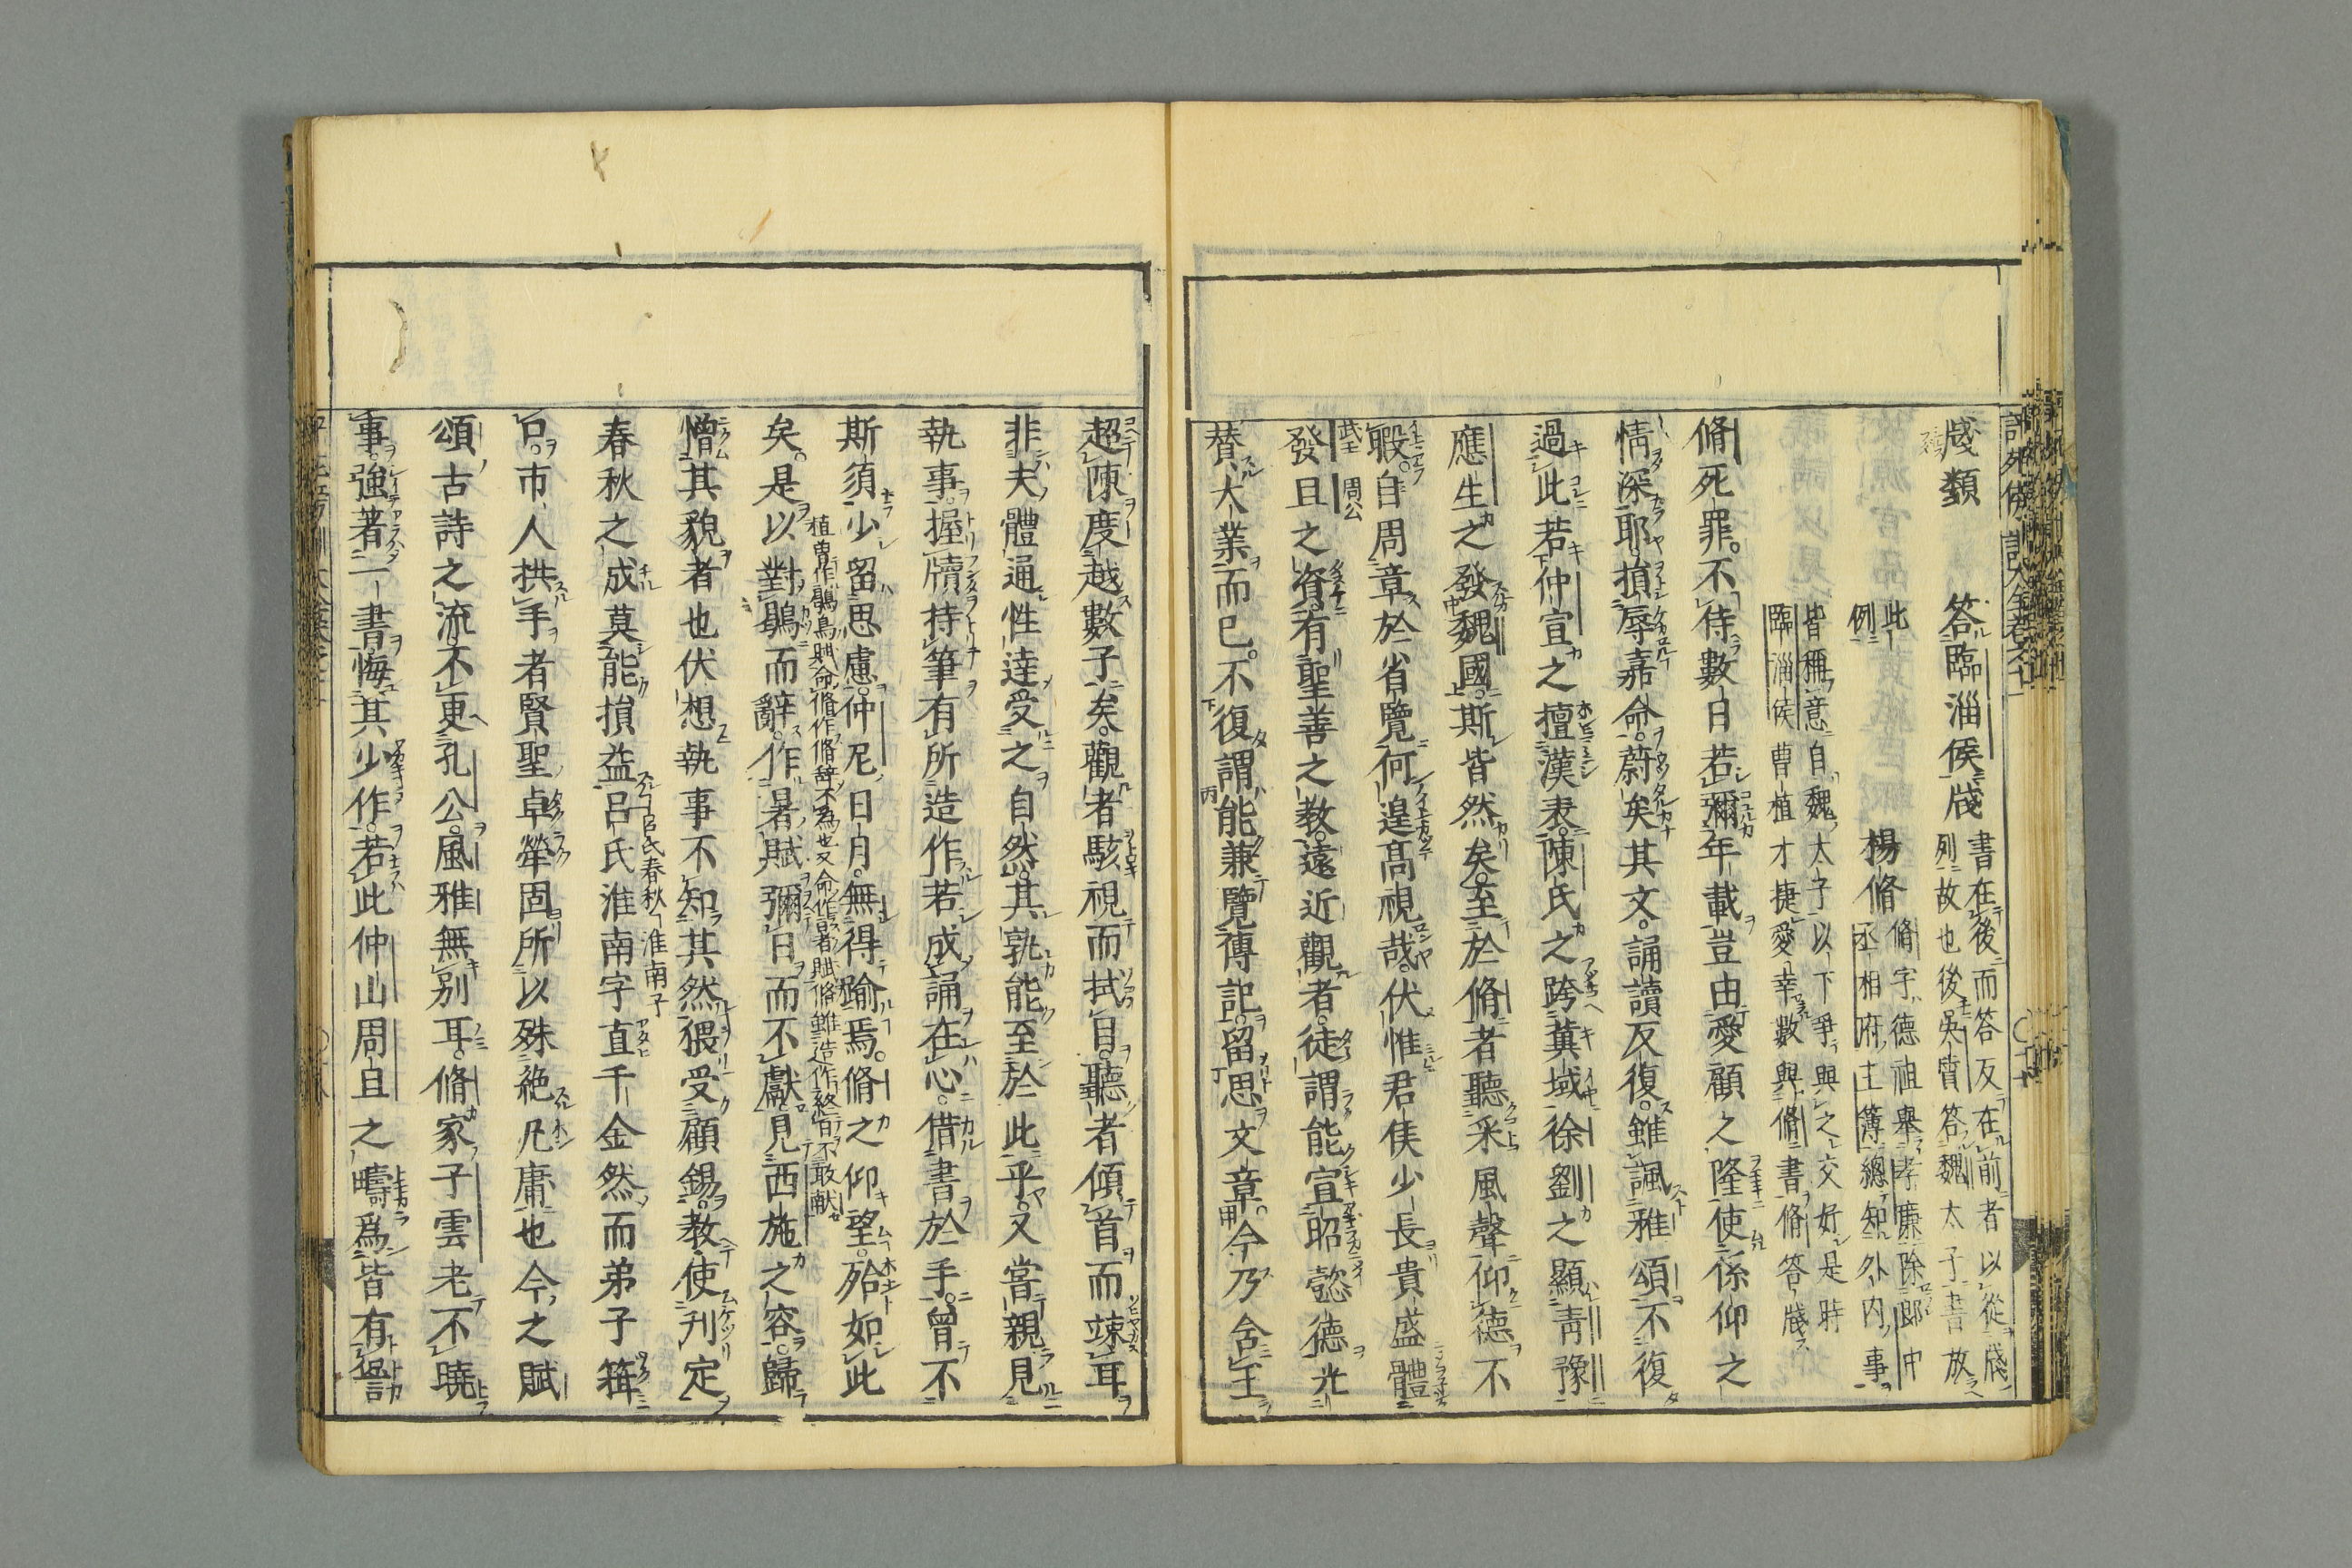 牋類　答臨淄侯牋
書在後而答反在前者以從牋
列故也後吳質答魏太子書放
此
例
楊脩
脩字德祖舉孝廉除郎中
丞相府主簿總知外内事
皆稱意自魏太子以下爭與之交好是時
臨淄侯曹植才捷愛幸數與脩書脩答牋
脩死罪不待數日若彌年載豈由愛顧之隆使係仰之
情深耶損辱嘉命蔚矣其文誦讀反復雖諷雅頌不復
過此若仲宣之擅漢表陳氏之跨冀域徐劉之顯青豫
應生之發魏國斯皆然矣至於脩者聽采風聲仰德不
暇自周章於省覽何遑高視哉伏惟君侯少長貴盛體
武王 周公
發旦之資有聖善之教遠近觀者徒謂能宣昭懿德光
賛大業而已不復謂能兼覽傳記留思文章今乃含王
超陳度越數子矣觀者駭視而拭目聽者傾首而竦耳
非夫體通性達受之自然其孰能至於此乎又嘗親見
執事握牘持筆有所造作若成誦在心借書於手曾不
斯須少留思慮仲尼日月無得踰焉脩之仰望殆如此
植曽作鶡鳥賦命脩作脩辞不為也又命作暑賦脩雖造作終日不敢献
矣是以對鶡而辭作暑賦彌日而不獻見西施之容歸
憎其貌者也伏想執事不知其然猥受顧錫教使刋定
春秋之成莫能損益呂氏淮南字直千金然而弟子箝
呂氏春秋 淮南子
口市人拱手者賢聖卓犖固所以殊絶凡庸也今之賦
頌古詩之流不更孔公風雅無別耳脩家子雲老不曉
事強著一書悔其少作若此仲山周旦之疇爲皆有𠎝